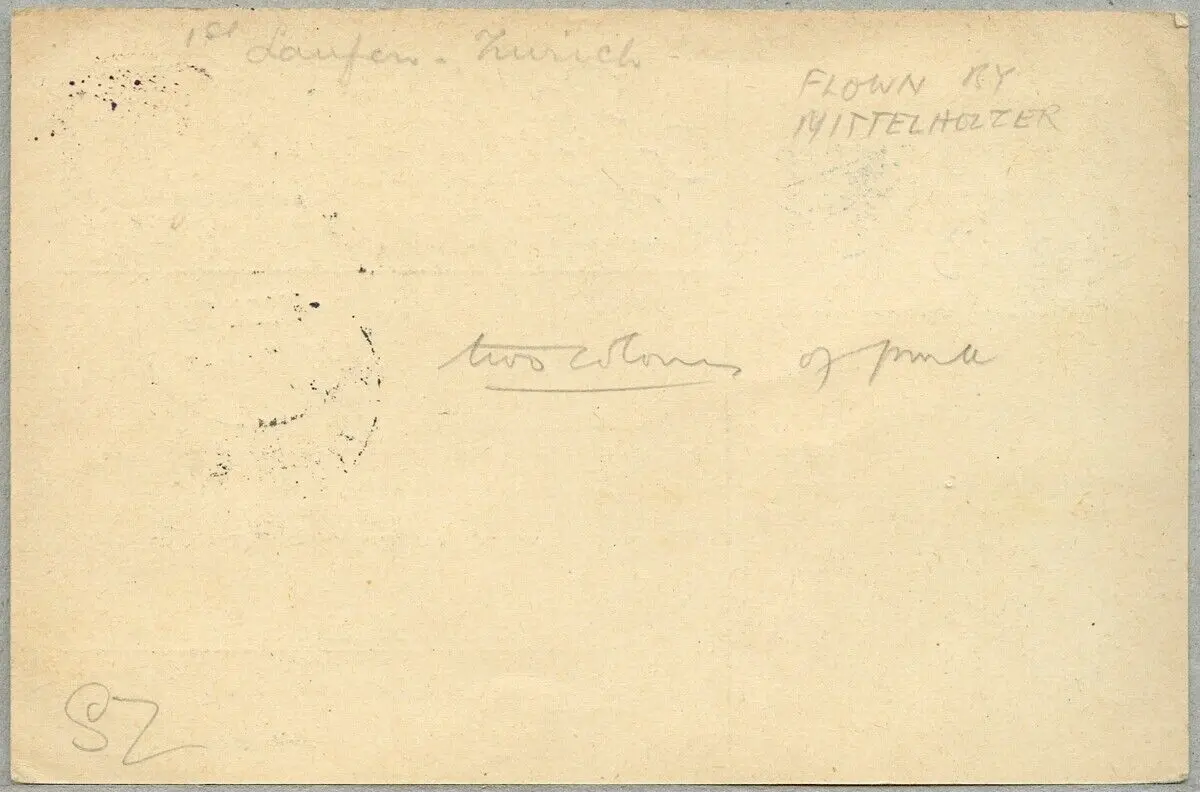 1st Laufen - Zurich
FLOWN BY
MITTELHOLZER
two colours of pink
SZ